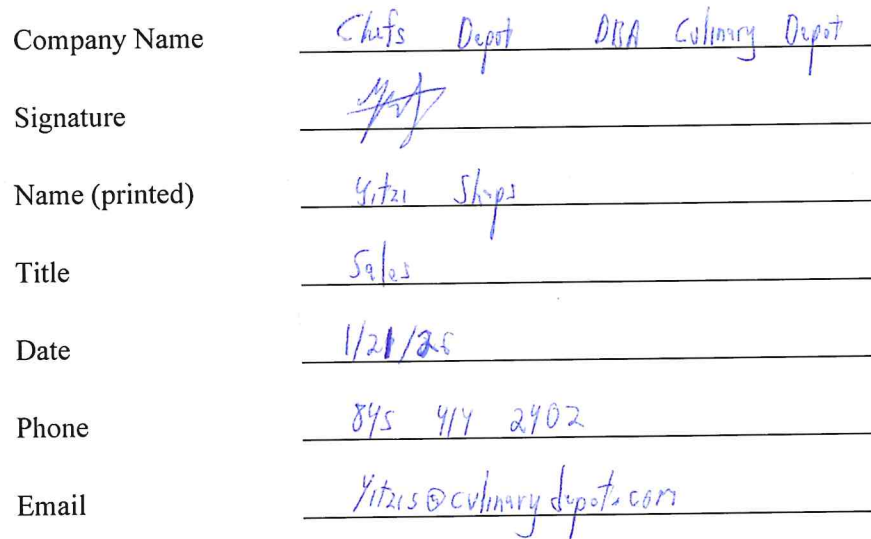 Company Name Chefs Depot DBA Culinary Depot
Signature
Name (printed) Yitzi
Title Sales
Date 1/21/26
Phone 845 414 2402
Email Yitzis@culinarydepot.com